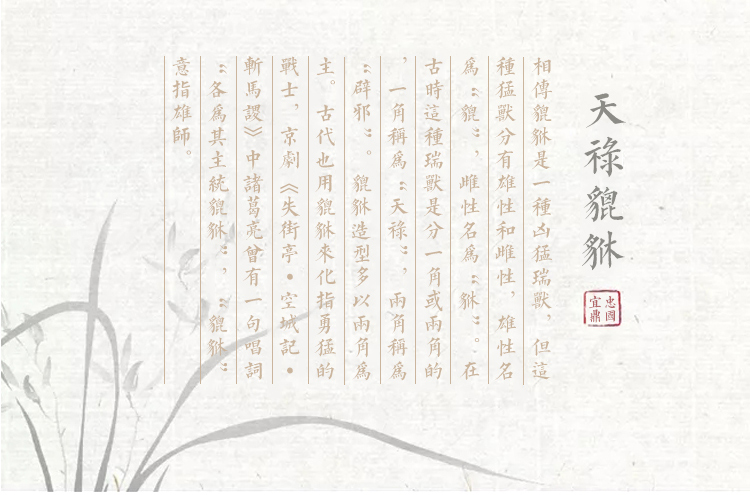 天祿貔貅
忠國
宜鼎
相傳貔貅是一種凶猛瑞獸，但這
種猛獸分有雄性和雌性，雄性名
為“貔”，雌性名為“貅”。在
古時這種瑞獸是分一角或兩角的
，一角稱為“天祿”，兩角稱為
“辟邪”。貔貅造型多以兩角為
主。古代也用貔貅來化指勇猛的
戰士，京劇《失街亭•空城記•
斬馬謖》中諸葛亮曾有一句唱詞
“各為其主統貔貅”，“貔貅”
意指雄師。